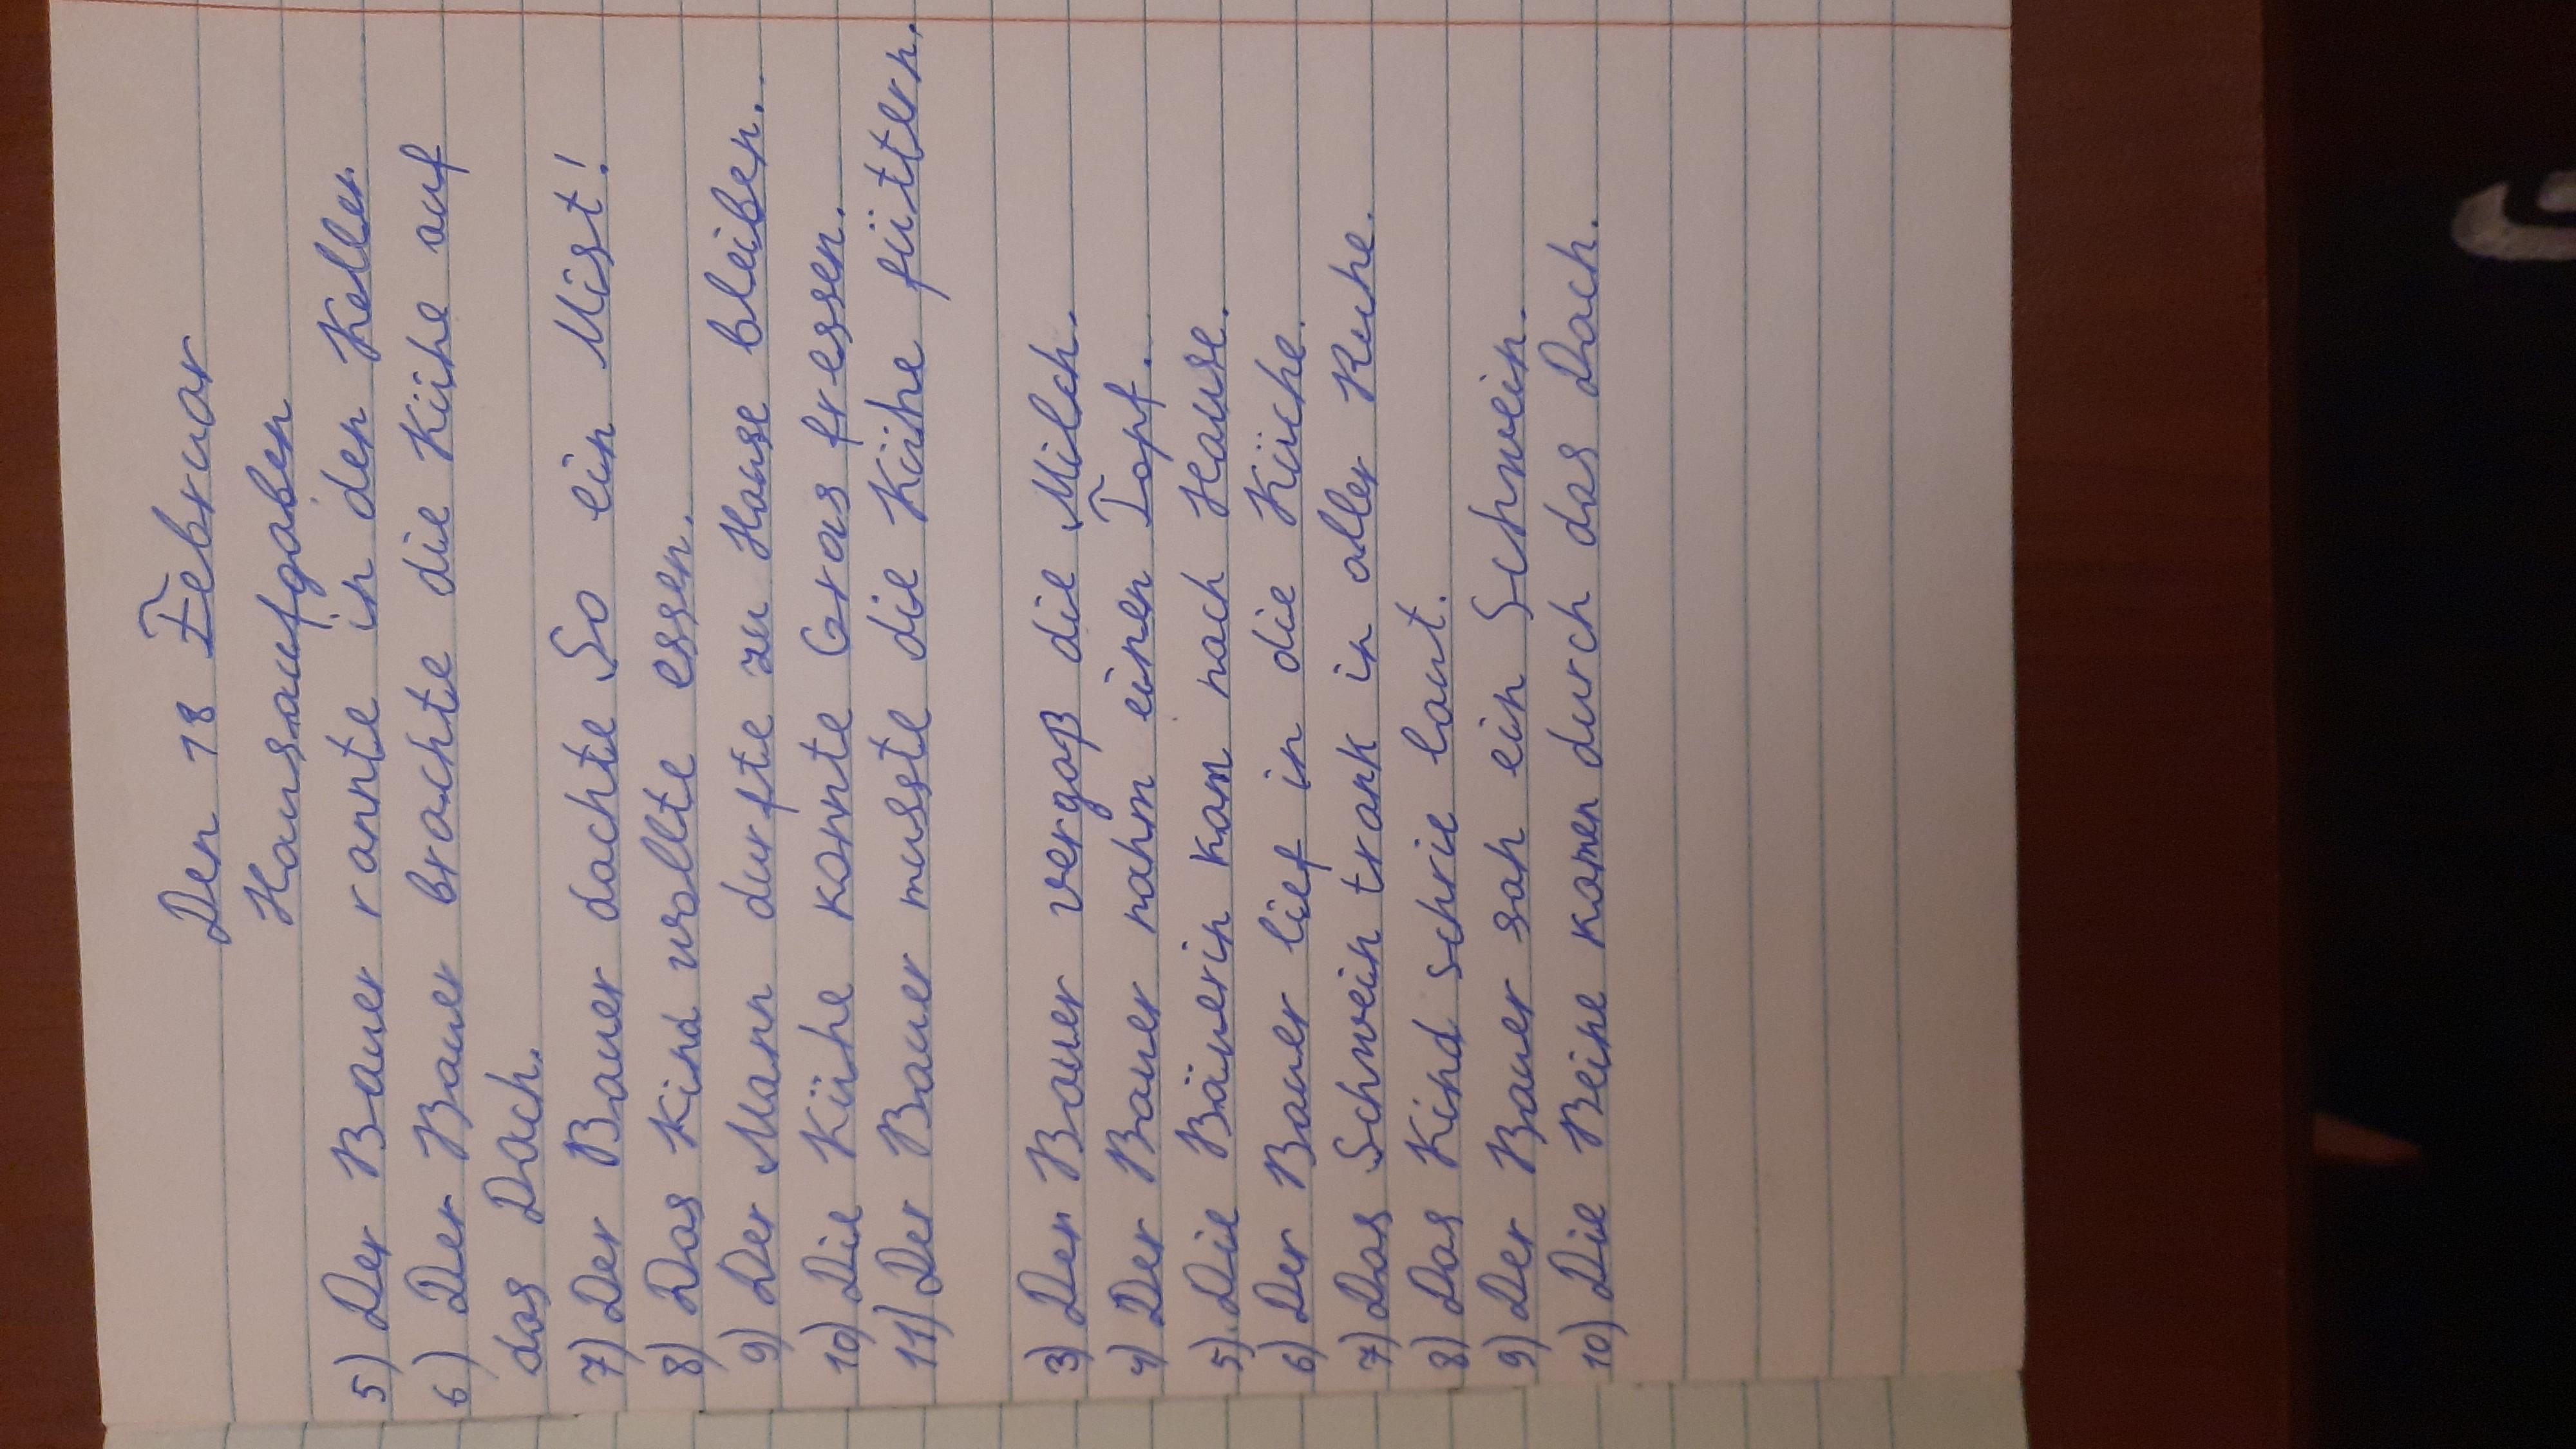 Den 18 Februar
Hausaufgaben
5) Der Bauer rannte in den Keller
6) Der Bauer brachte die Kühe auf
das Dach.
7) Der Bauer dachte So ein Mist!
8) Das Kind wollte essen.
9) Der Mann durfte zu Hause bleiben.
10) Die Kühe konnte Gras fressen.
11) Der Bauer musste die Kühe füttern.
3) Der Bauer vergaß die Milch.
4) Der Bauer nahm einen Topf.
5) Die Bäuerin kam nach Hause.
6) Der Bauer lief in die Küche.
7) Das Schwein trank in aller Ruhe.
8) Das Kind schrie laut.
9) Der Bauer sah ein Schwein.
10) Die Beine kamen durch das Dach.